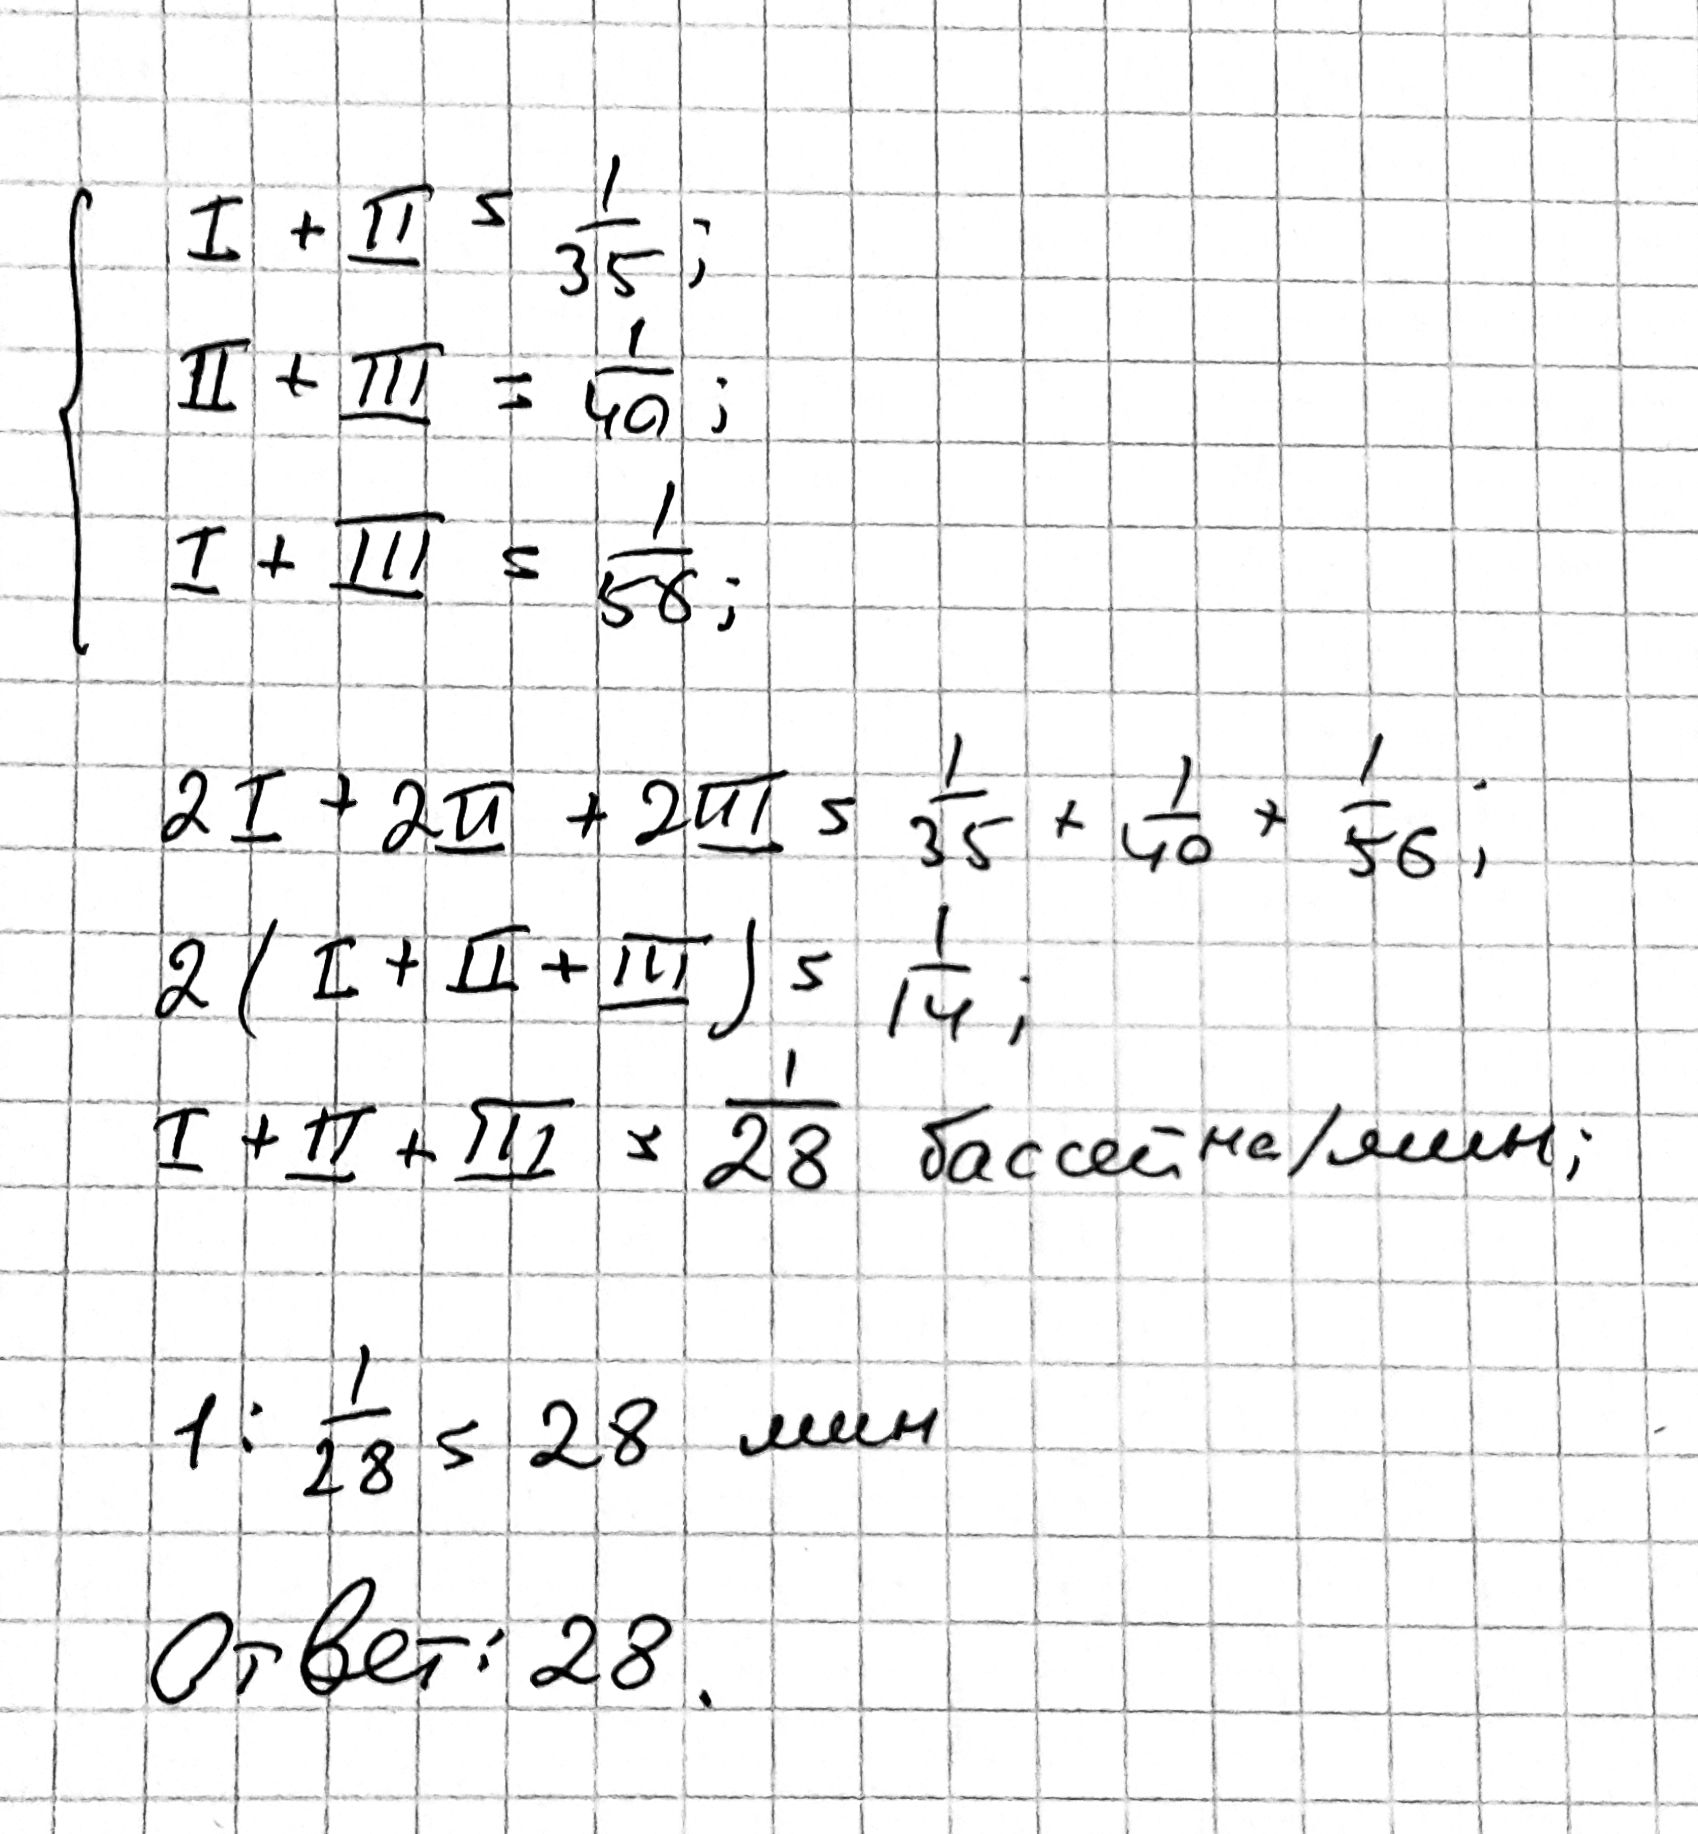 I + II = 1/35;
II + III = 1/40;
I + III = 1/56;
2I + 2II + 2III = 1/35 + 1/40 + 1/56;
2(I + II + III) = 1/14;
I + II + III = 1/28 бассейна/мин;
1 : 1/28 = 28 мин
Ответ: 28.